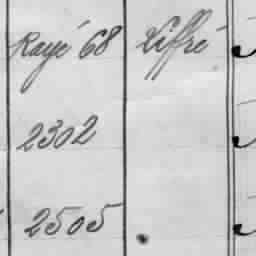 Rayé 68 Xifré
2302
2505